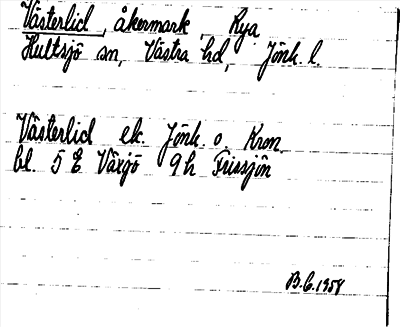 Västerlid, åkermark, Rya
Hultsjö sn, Västra hd, Jönk. l.
Västerlid ek. Jönk. o. Kron.
bl. 5 E Växjö 9h Frissjön
B.C. 1958